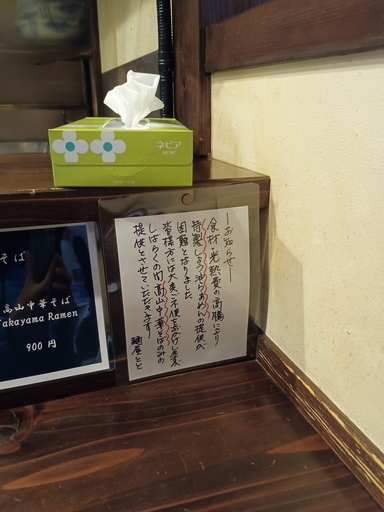 ネピア
そば
高山中華そば
Takayama Ramen
900 円
ーお知らせー
食材・光熱費の高騰により
特製しょう油らぁめんの提供が
困難となりました
皆様方には大変ご不便をおかけしますが
しばらくの間高山中華そばのみの
提供とさせていただきます
麺屋とと